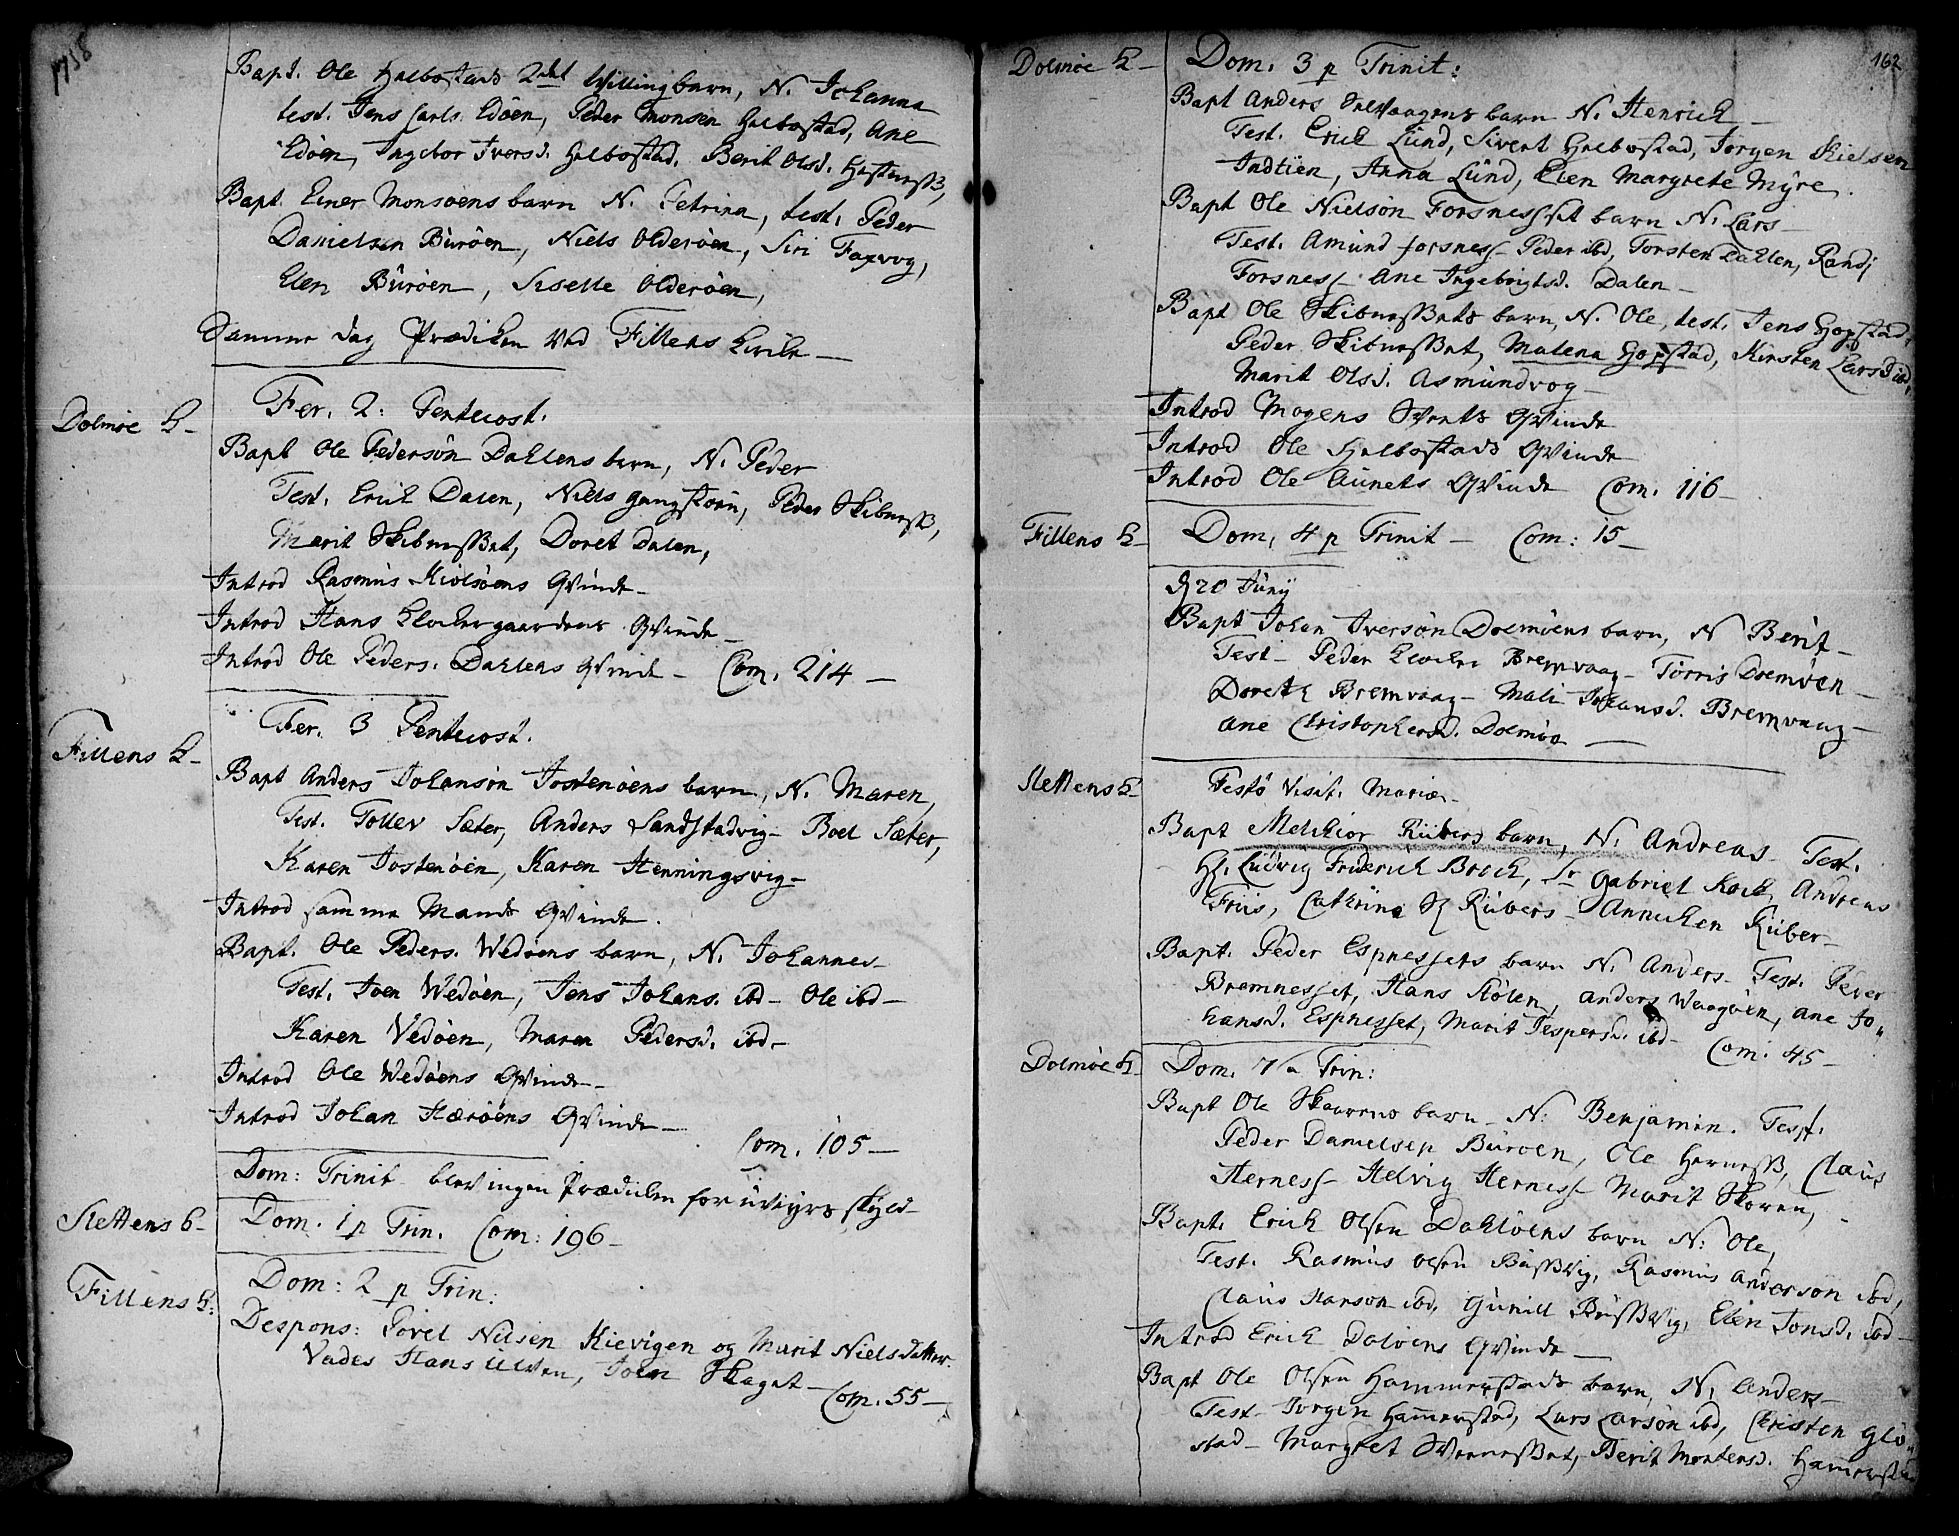 1758
Bapt. Ole Helbostads 2det tvillingbarn, N. Johanna
test. Jens Carls. Edöen, Peder Monsen Helbostad, Ane
Edöen, Ingebor Iversd. Helbostad. Berit Olsd. Hestness,
Bapt. Einer Monsøens barn N. Petrina, test. Peder
Danielsen Büröen, Niels Olderöen, Siri Faxvog,
Elen Büröen, Siselle Olderöen,
Samme dag Prædiken ved Fillens Kirke
Dolmöe K-
Fer. 2: Pentecost.
Bapt Ole Pedersön Dahlens barn, N. Peder
Test. Erich Dalen, Niels Gangstöen, Peder Skibness,
Marit Skibnesset, Doret Dalen,
Introd Rasmus Kiölsöens Qvinde
Introd Hans Klochergaardens Qvinde
Introd Ole Peders. Dahlens Qvinde - Com. 214 -
Fillens K-
Fer. 3 Pentecost.
Bapt Anders Johansön Jostenöens barn, N. Maren,
Test. Tollev Sæter, Anders Sandstadvig - Boel Sæter,
Karen Jostenöen, Karen Henningsvig -
Introd samme Mands Qvinde.
Bapt. Ole Peders. Wedöens barn, N. Johannes -
Test. Joen Wedöen, Jens Johans. ibd - Ole ibd -
Karen Vedöen, Maren Pedersd. ibd -
Introd Ole Wedöens Qvinde -
Introd Johan Hæröens Qvinde -
Com. 105 -
Dom: Trinit blev ingen Prædiken for uveyrs skyld -
Slettens K-
Dom. 1 p Trin. Com: 196 -
Fillens K:
Dom: 2 p Trin:
Despons: Povel Nilsen Kievigen og Marit Nielsdatter.
Vades Hans Ulven, Joen Skaget -
Com. 55 -
162
Dolmöe K -
Dom. 3 p Trinit:
Bapt Anders barn N. Henrich -
Test. Erich Lund, Sivert Helbostad, Jörgen Kielsen
Indtien, Anna Lünd, Elen Margrete Myre
Bapt Ole Nielsön Forsnesset barn N. Lars -
Test. Amund Forsness - Peder ibd, Torsten Dahlen, Randj
Forsness - Ane Ingebrigtsd. Dalen -
Bapt Ole Skibnessets barn, N. Ole, test. Jens Hopstad,
Peder Skibnesset, Malena Hopstad, Kirsten Larsd ibd,
Marit Olsd. Asmundvog -
Introd Mogens Qvinde
Introd Ole Helbostads Qvinde
Introd Ole Aunets Qvinde Com. 116 -
Fillens K -
Dom. 4 p Trinit - Com: 15 -
d 20 Junij
Bapt Johan Iversön Dolmöens barn, N Berit -
Test - Peder Klocher Bremvaag - Torris Dolmöen -
Doreth Bremvaag - Mali Johansd. Bremvaag -
Ane Christophersd. Dolmöe -
Slettens K-
Festo Visit. Mariæ -
Bapt Melchior Rübers barn, N. Andreas - Test.
Hr. Ludvig Friderich Broch, Sr Gabriel Koch, Andreas
Friis, Cathrina Sl Rübers - Annichen Rüber -
Bapt. Peder Espnessets barn N. Anders - Test. Peder
Bremnesset, Hans Stölen, Anders Waagöen, Ane Jo„
hansd. Espnesset, Marit Jespersd. ibd -
Com: 45 -
Dolmöe K -
Dom. 7 p Trin:
Bapt Ole Skaarens barn - N: Benjamin. Test.
Peder Danielsen Büroen, Ole Herness, Claus
Herness - Helvig Herness - Marit Skoren,
Bapt. Erich Olsen Dahlöens barn N: Ole,
Test. Rasmus Olsen Büssvig, Rasmus Andersön ibd,
Claus Hansön ibd, Gunill Büssvig, Elen Jonsd. ibd -
Introd Erich Dalöens Qvinde -
Bapt Ole Olsen Hammerstads barn, N. Anders -
Test - Jörgen Hamerstad, Lars Larsön ibd, Christen Glö„
stad - Margret Berit Mortensd. Hamerstad